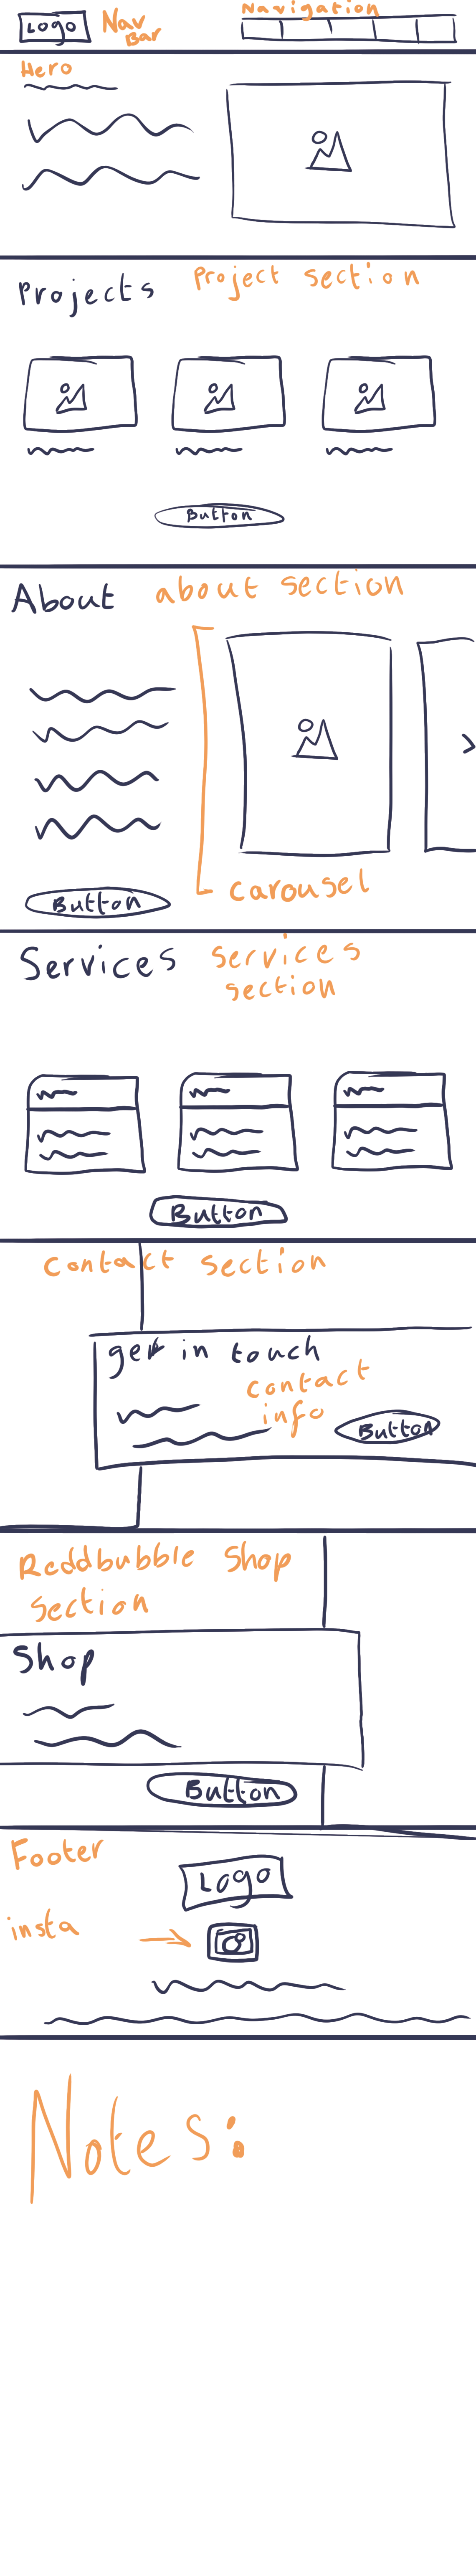 Logo
Nav
Bar
Navigation
Hero
Projects
Project section
Button
About
about section
Button
Carousel
Services
Services
section
Button
Contact section
get in touch
contact
info
Button
Reddbubble Shop
Section
Shop
Button
Footer
Logo
insta
Notes: